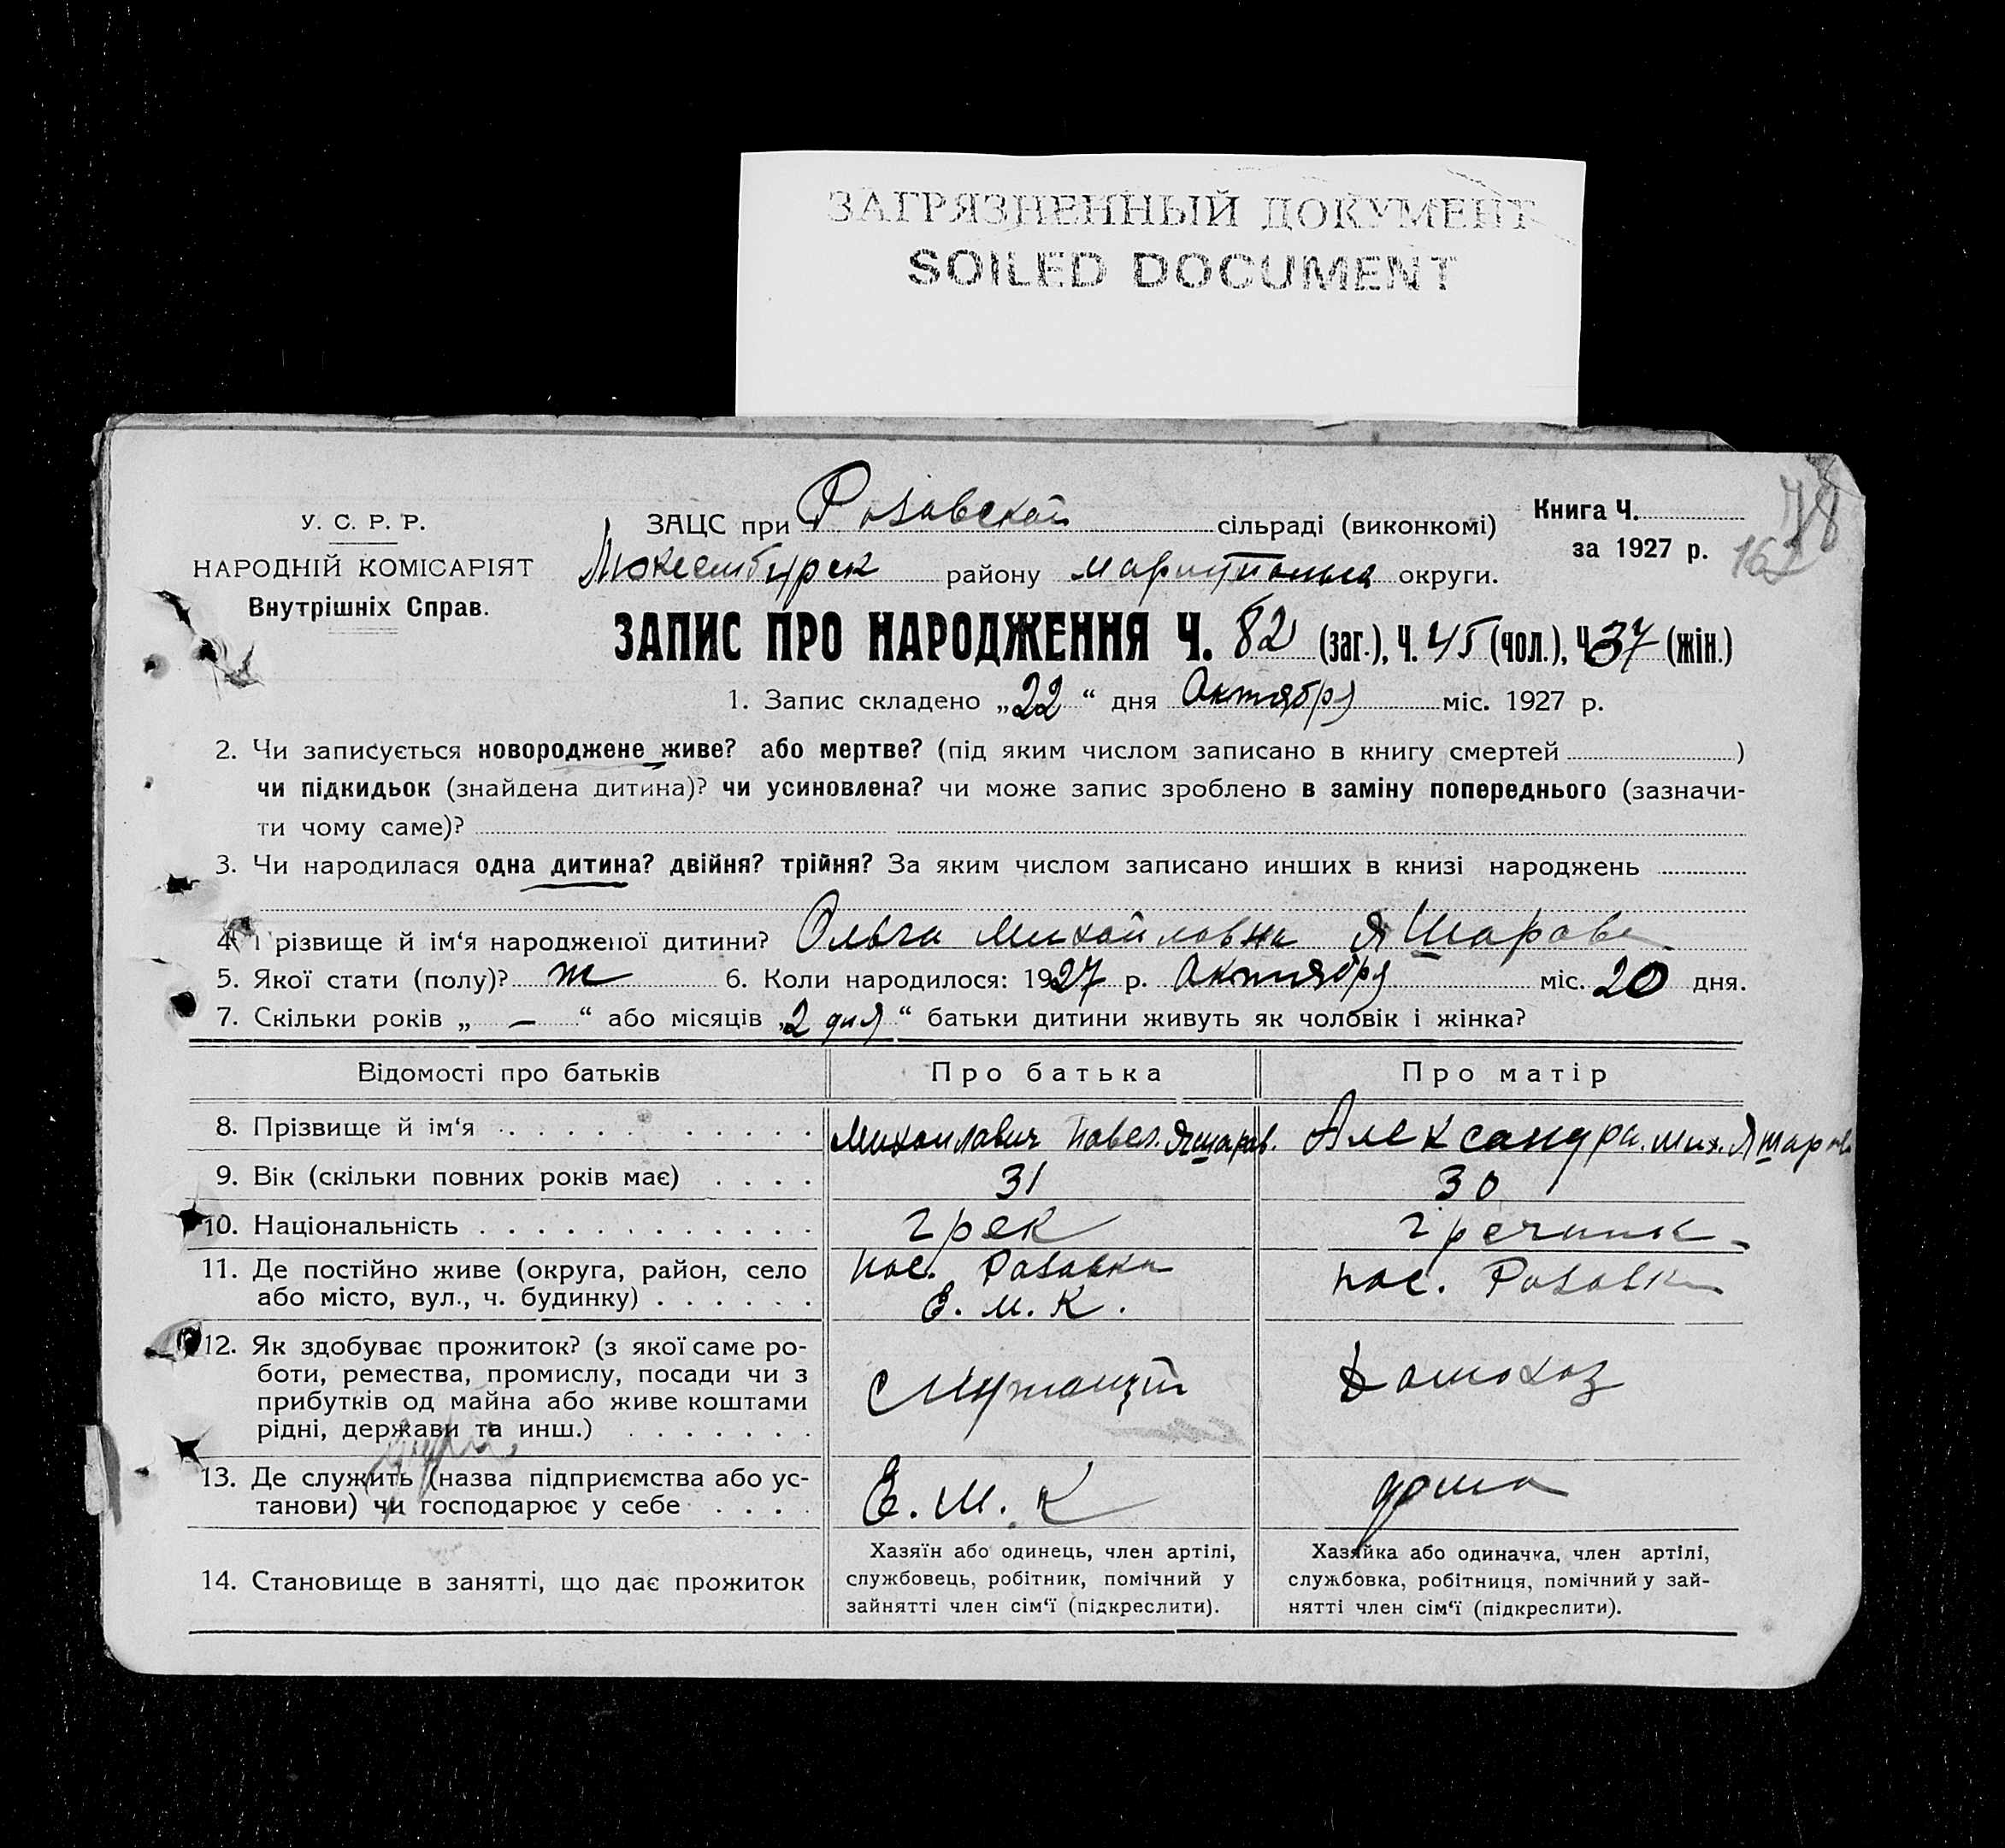 ЗАГРЯЗНЕННЫЙ ДОКУМЕНТ
SOILED DOCUMENT
У. С. Р. Р.
НАРОДНІЙ КОМІСАРІЯТ
Внутрішніх Справ.
ЗАЦС при Розовской сільраді (виконкомі)
Люксембургск району Мариупольск округи.
Книга Ч.
за 1927 р.
78
162
ЗАПИС ПРО НАРОДЖЕННЯ Ч. 82 (заг.), Ч. 45 (чол.), Ч. 37 (жін.)
1. Запис складено „22“ дня Октября міс. 1927 р.
2. Чи записується новороджене живе? або мертве? (під яким числом записано в книгу смертей )
чи підкидьок (знайдена дитина)? чи усиновлена? чи може запис зроблено в заміну попереднього (зазначи-
ти чому саме)?
3. Чи народилася одна дитина? двійня? трійня? За яким числом записано инших в книзі народжень
4. Прізвище й ім‘я народженої дитини? Ольга Михайловна Яшарова
5. Якої стати (полу)? ж 6. Коли народилося: 1927 р. Октября міс. 20 дня.
7. Скільки років „ — “ або місяців „2 дня“ батьки дитини живуть як чоловік і жінка?
Відомості про батьків Про батька Про матір
8. Прізвище й ім‘я Михаилович Павел. Яшаров. Александра. Мих. Яшарова
9. Вік (скільки повних років має) 31 30
10. Національність грек гречанк
11. Де постійно живе (округа, район, село
або місто, вул., ч. будинку)
пос. Розовка
Е. М. К.
пос. Розовка
12. Як здобуває прожиток? (з якої саме ро-
боти, ремества, промислу, посади чи з
прибутків од майна або живе коштами
рідні, держави та инш.)
служащий
Домохоз
13. Де служить (назва підприємства або ус-
танови) чи господарює у себе
Е. М. К
дома
14. Становище в занятті, що дає прожиток
Хазяїн або одинець, член артілі,
службовець, робітник, помічний у
зайнятті член сім‘ї (підкреслити).
Хазяйка або одиначка, член артілі,
службовка, робітниця, помічний у зай-
нятті член сім‘ї (підкреслити).